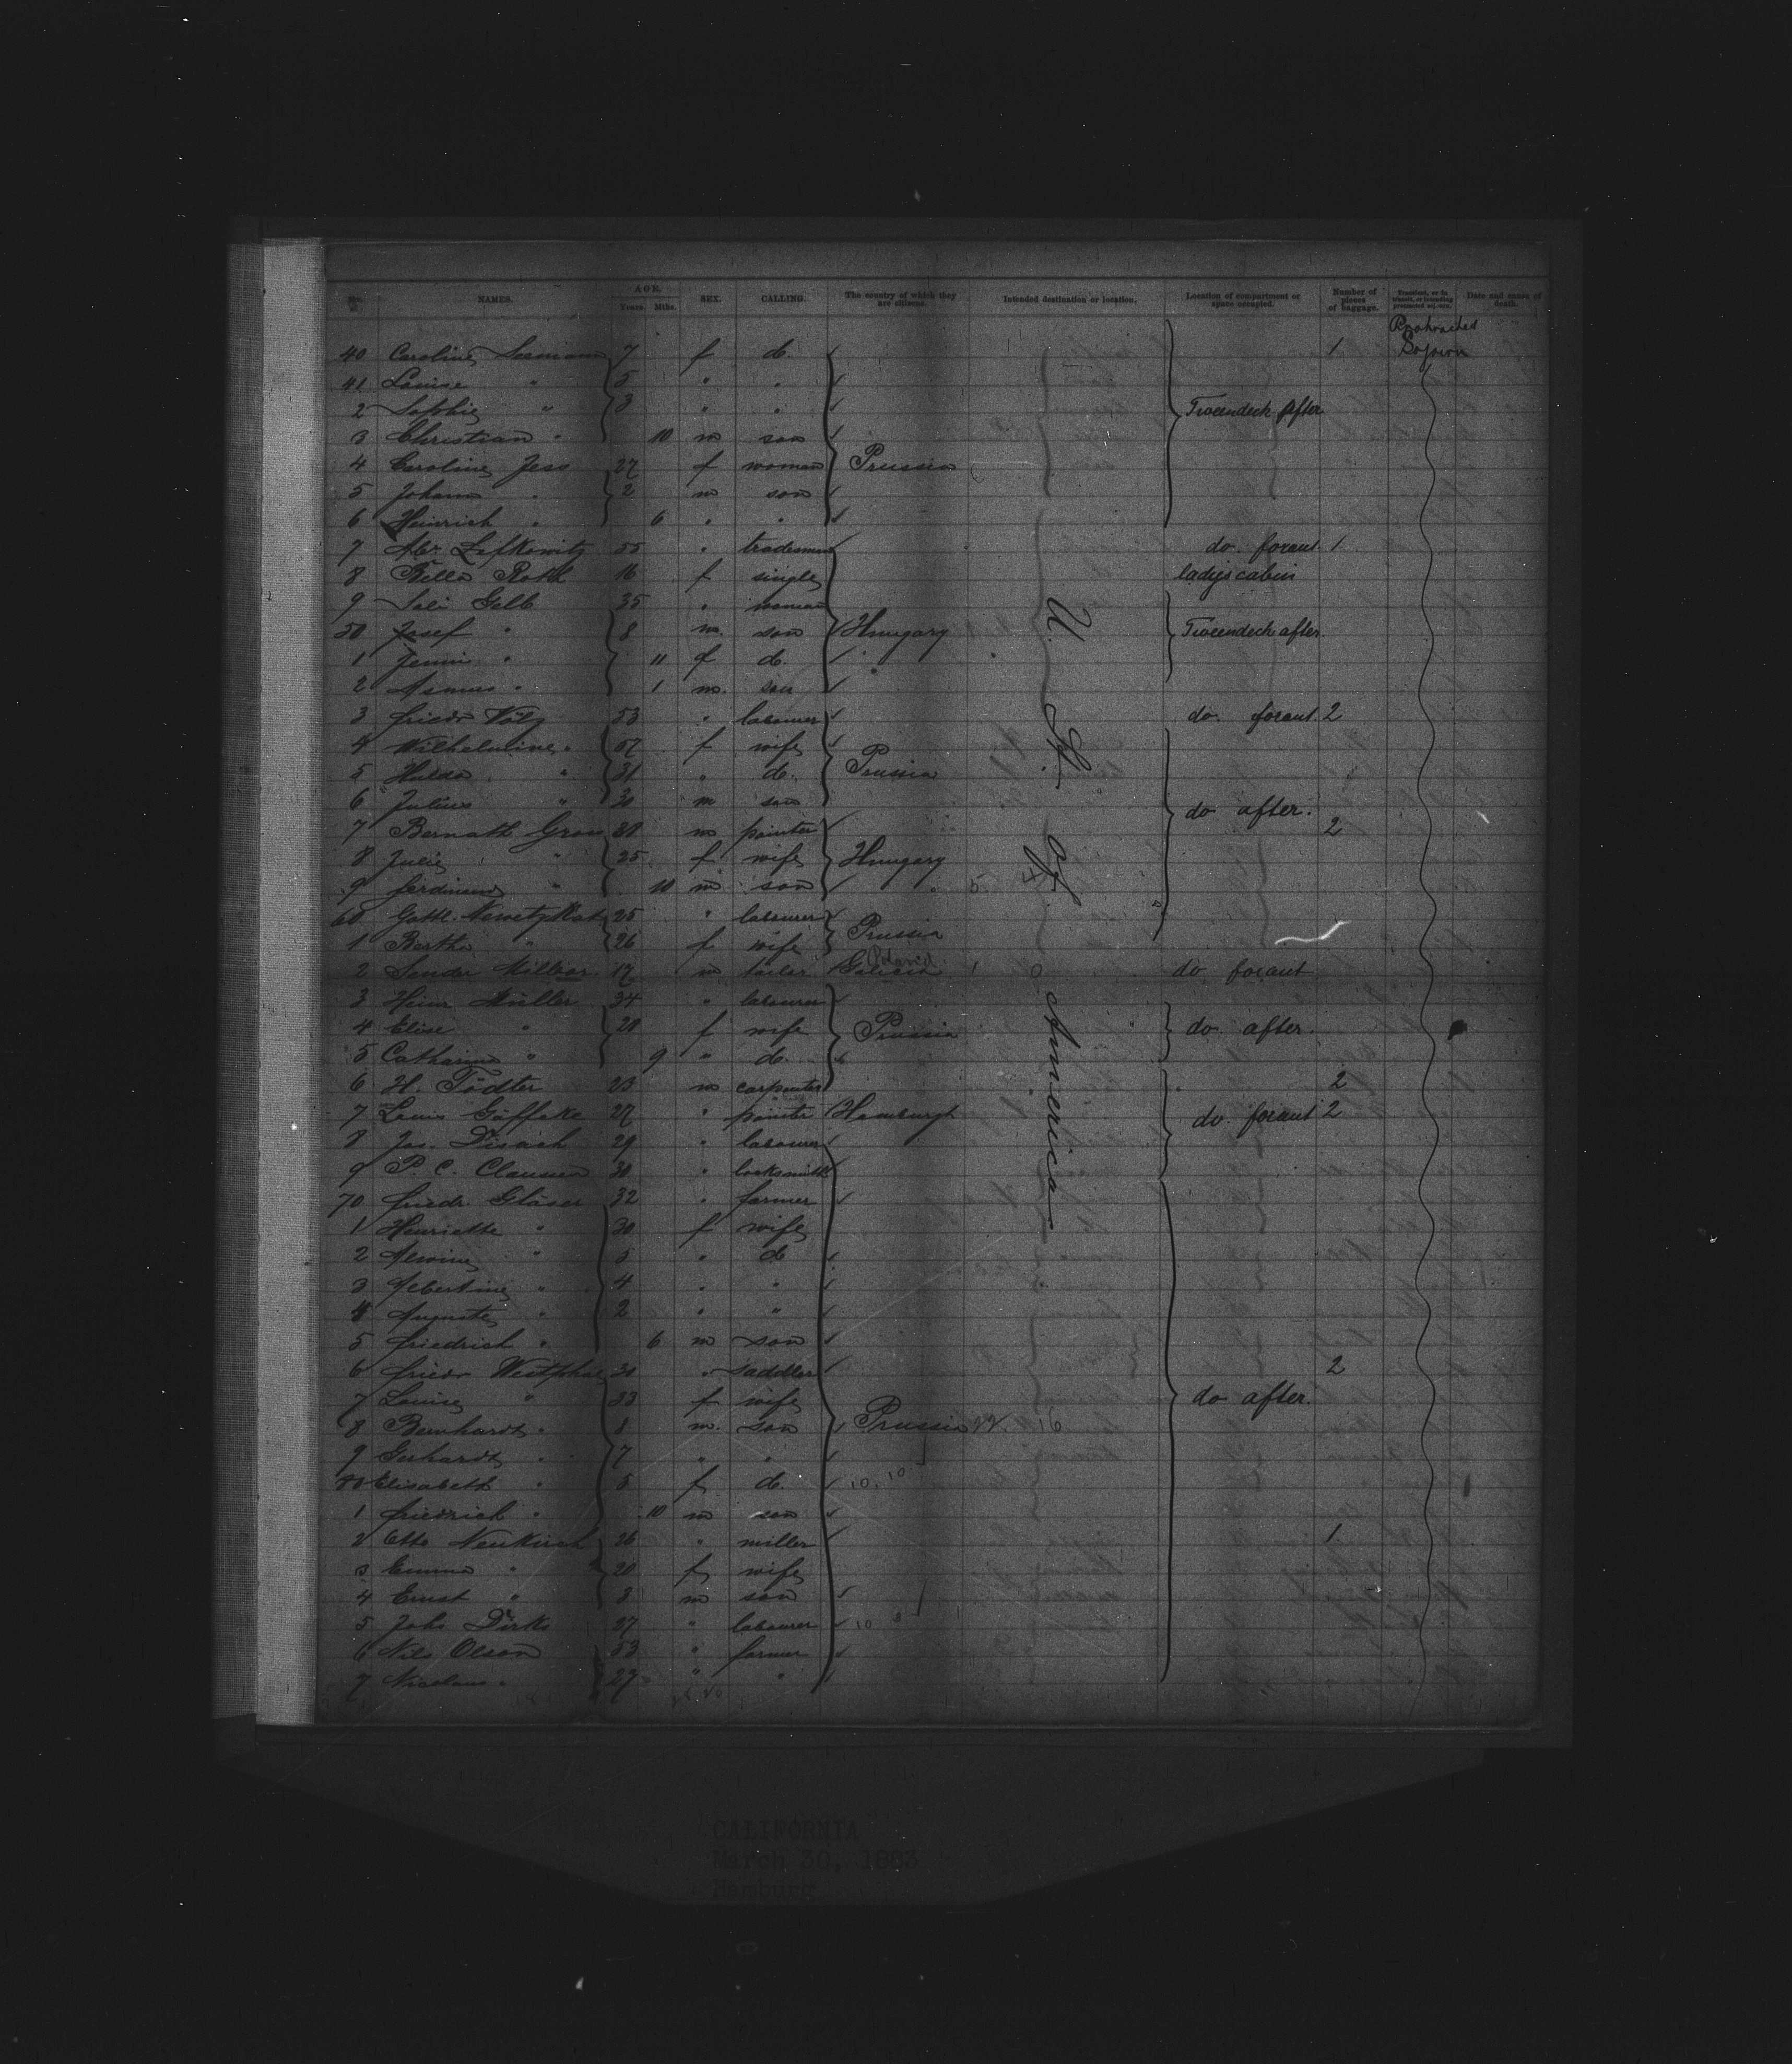 No. NAMES. AGE. Years. Mths. SEX. CALLING. The country of which they are citizens. Intended destination or location. Location of compartment or space occupied. Number of pieces of baggage. Transient, or in transit, or intending protracted sojourn. Date and cause of death.
Protracted Sojourn
40 Caroline Seemann 7 f d. 1
41 Louise " 5 " "
2 Sophie " 3 " " Tweendeck after
3 Christian " 10 m son
4 Caroline Jess 27 f woman Prussia
5 Johann " 2 m son
6 Heinrich " 6 " "
7 Abr. Lefkowitz 55 " tradesman do. foraut 1
8 Bella Roth 16 f single ladys cabin
9 Sali Gelb 35 " woman
50 Josef " 8 m. son Hungary Tweendeck after
1 Jenni " 11 f d.
2 " 1 m. son
3 Friedr 53 " labourer do. foraut 2
4 Wilhelmine " 57 f wife
5 Hulda " 31 " d. Prussia
6 Julius " 30 m son do after.
7 Bernath 38 m painter 2
8 Julie " 25 f wife Hungary
9 Ferdinand " 10 m son 5
60 Gottl. 25 " labourer
1 Bertha " 26 f wife Prussia
2 Sender 17 m tailor Galicia Poland 1 do foraut
3 Heinr. Müller 34 " labourer
4 Elise " 28 f wife Prussia do after.
5 Catharina " 9 " d.
6 H. Tödter 23 m carpenter 2
7 Louis 27 " painter Hamburgh do. foraut 2
8 Jos. 29 " labourer
9 P. C. Claussen 30 " locksmith
70 Friedr. Gläser 32 " farmer
1 Henriette " 30 f wife
2 Alwine " 5 " d
3 Albertine " 4 " "
4 Auguste " 2 " "
5 Friedrich " 6 m son
6 Friedr Westphal " saddler 2
7 Louise " 33 f wife do after.
8 Bernhardt " 8 m. son Prussia 16
9 Gerhardt " 7 " "
80 Elisabeth " 5 f d. 10. 10
1 Friedrich " 10 m son
2 Otto Neukirch 26 " miller 1
3 Emma " 20 f wife
4 Ernst " 3 m son
5 Johs Dirks 27 " labourer 10 3
6 Nils Olson 33 " farmer
7 Nicolaus " 27 " "
U. St. of America
CALIFORNIA
March 30, 1883
Hamburg